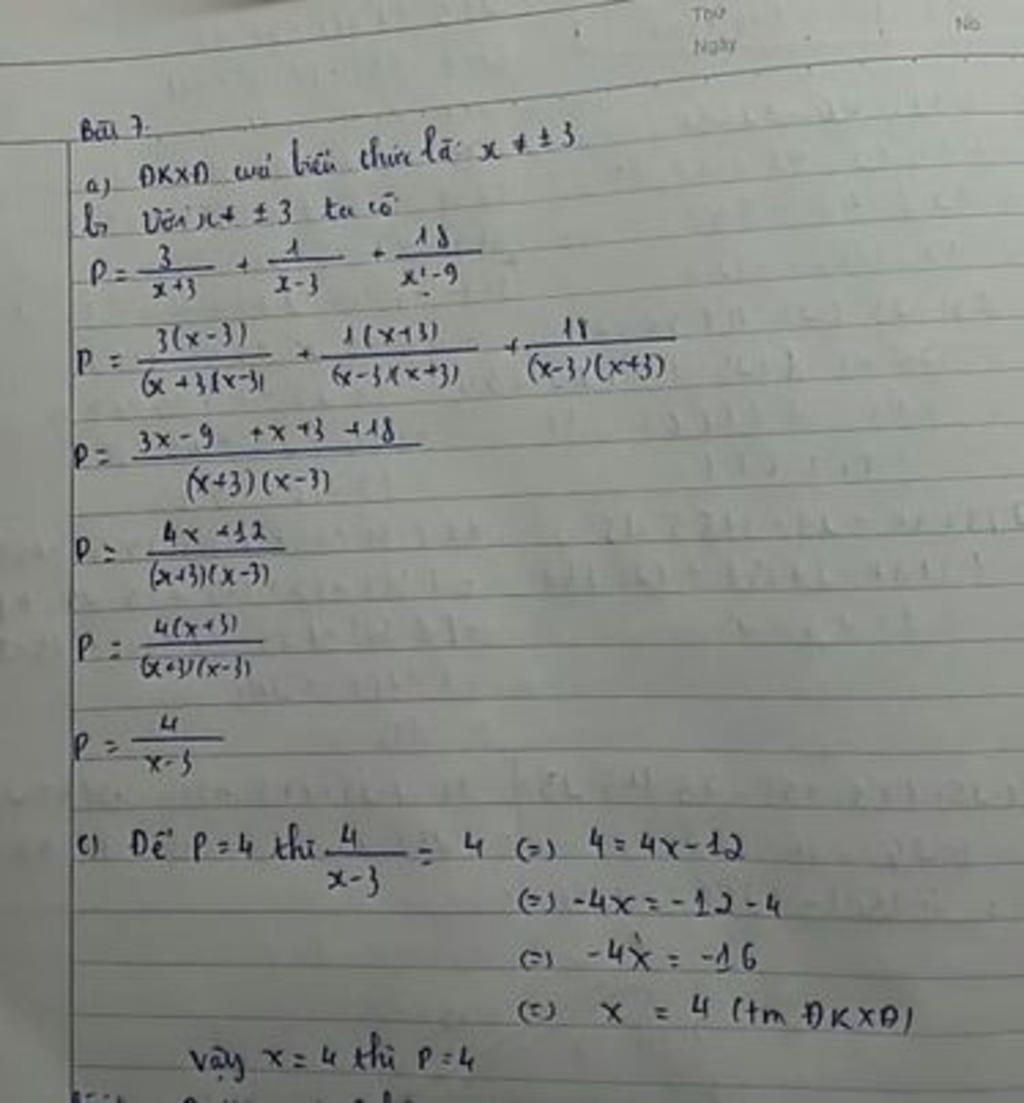 Thứ
Ngày
No
Bài 7.
a) ĐKXĐ của biểu thức là x ≠ ±3
b, Với x ≠ ±3 ta có
P = 3/(x+3) + 1/(x-3) + 18/(x²-9)
P = 3(x-3)/((x+3)(x-3)) + 1(x+3)/((x-3)(x+3)) + 18/((x-3)(x+3))
P = (3x-9 +x+3 +18)/((x+3)(x-3))
P = (4x+12)/((x+3)(x-3))
P = 4(x+3)/((x+3)(x-3))
P = 4/(x-3)
c) Để P=4 thì 4/(x-3) = 4 (=) 4=4x-12
(=) -4x=-12-4
(=) -4x = -16
(=) x = 4 (tm ĐKXĐ)
Vậy x=4 thì P=4